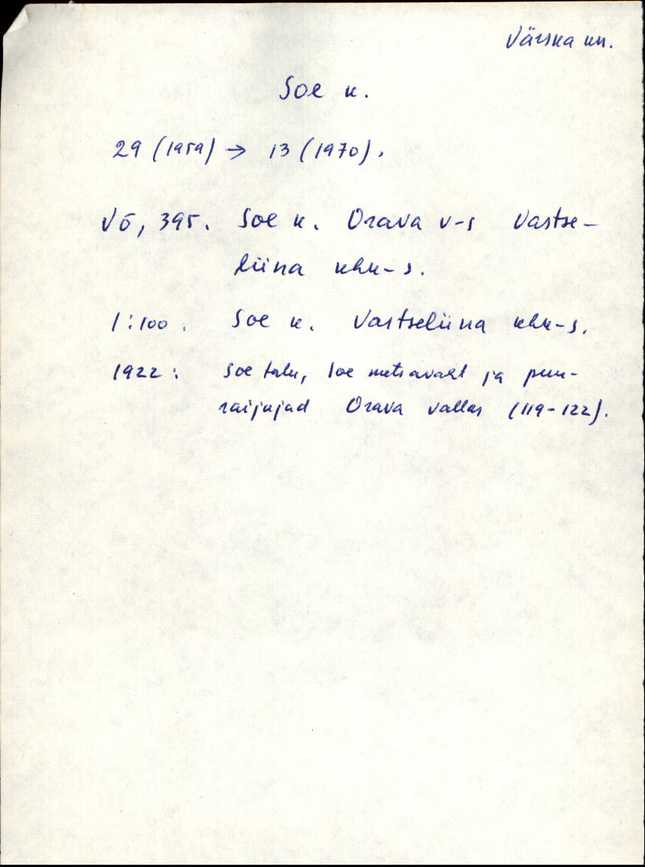 Värska kn.
Soe k.
29 (1959) → 13 (1970).
Võ, 395. Soe k. Orava v-s Vastse-
liina khk-s.
1:100. Soe k. Vastseliina khk-s.
1922: Soe talu, Soe metsavaht ja puu-
raijujad Orava vallas (119-122).